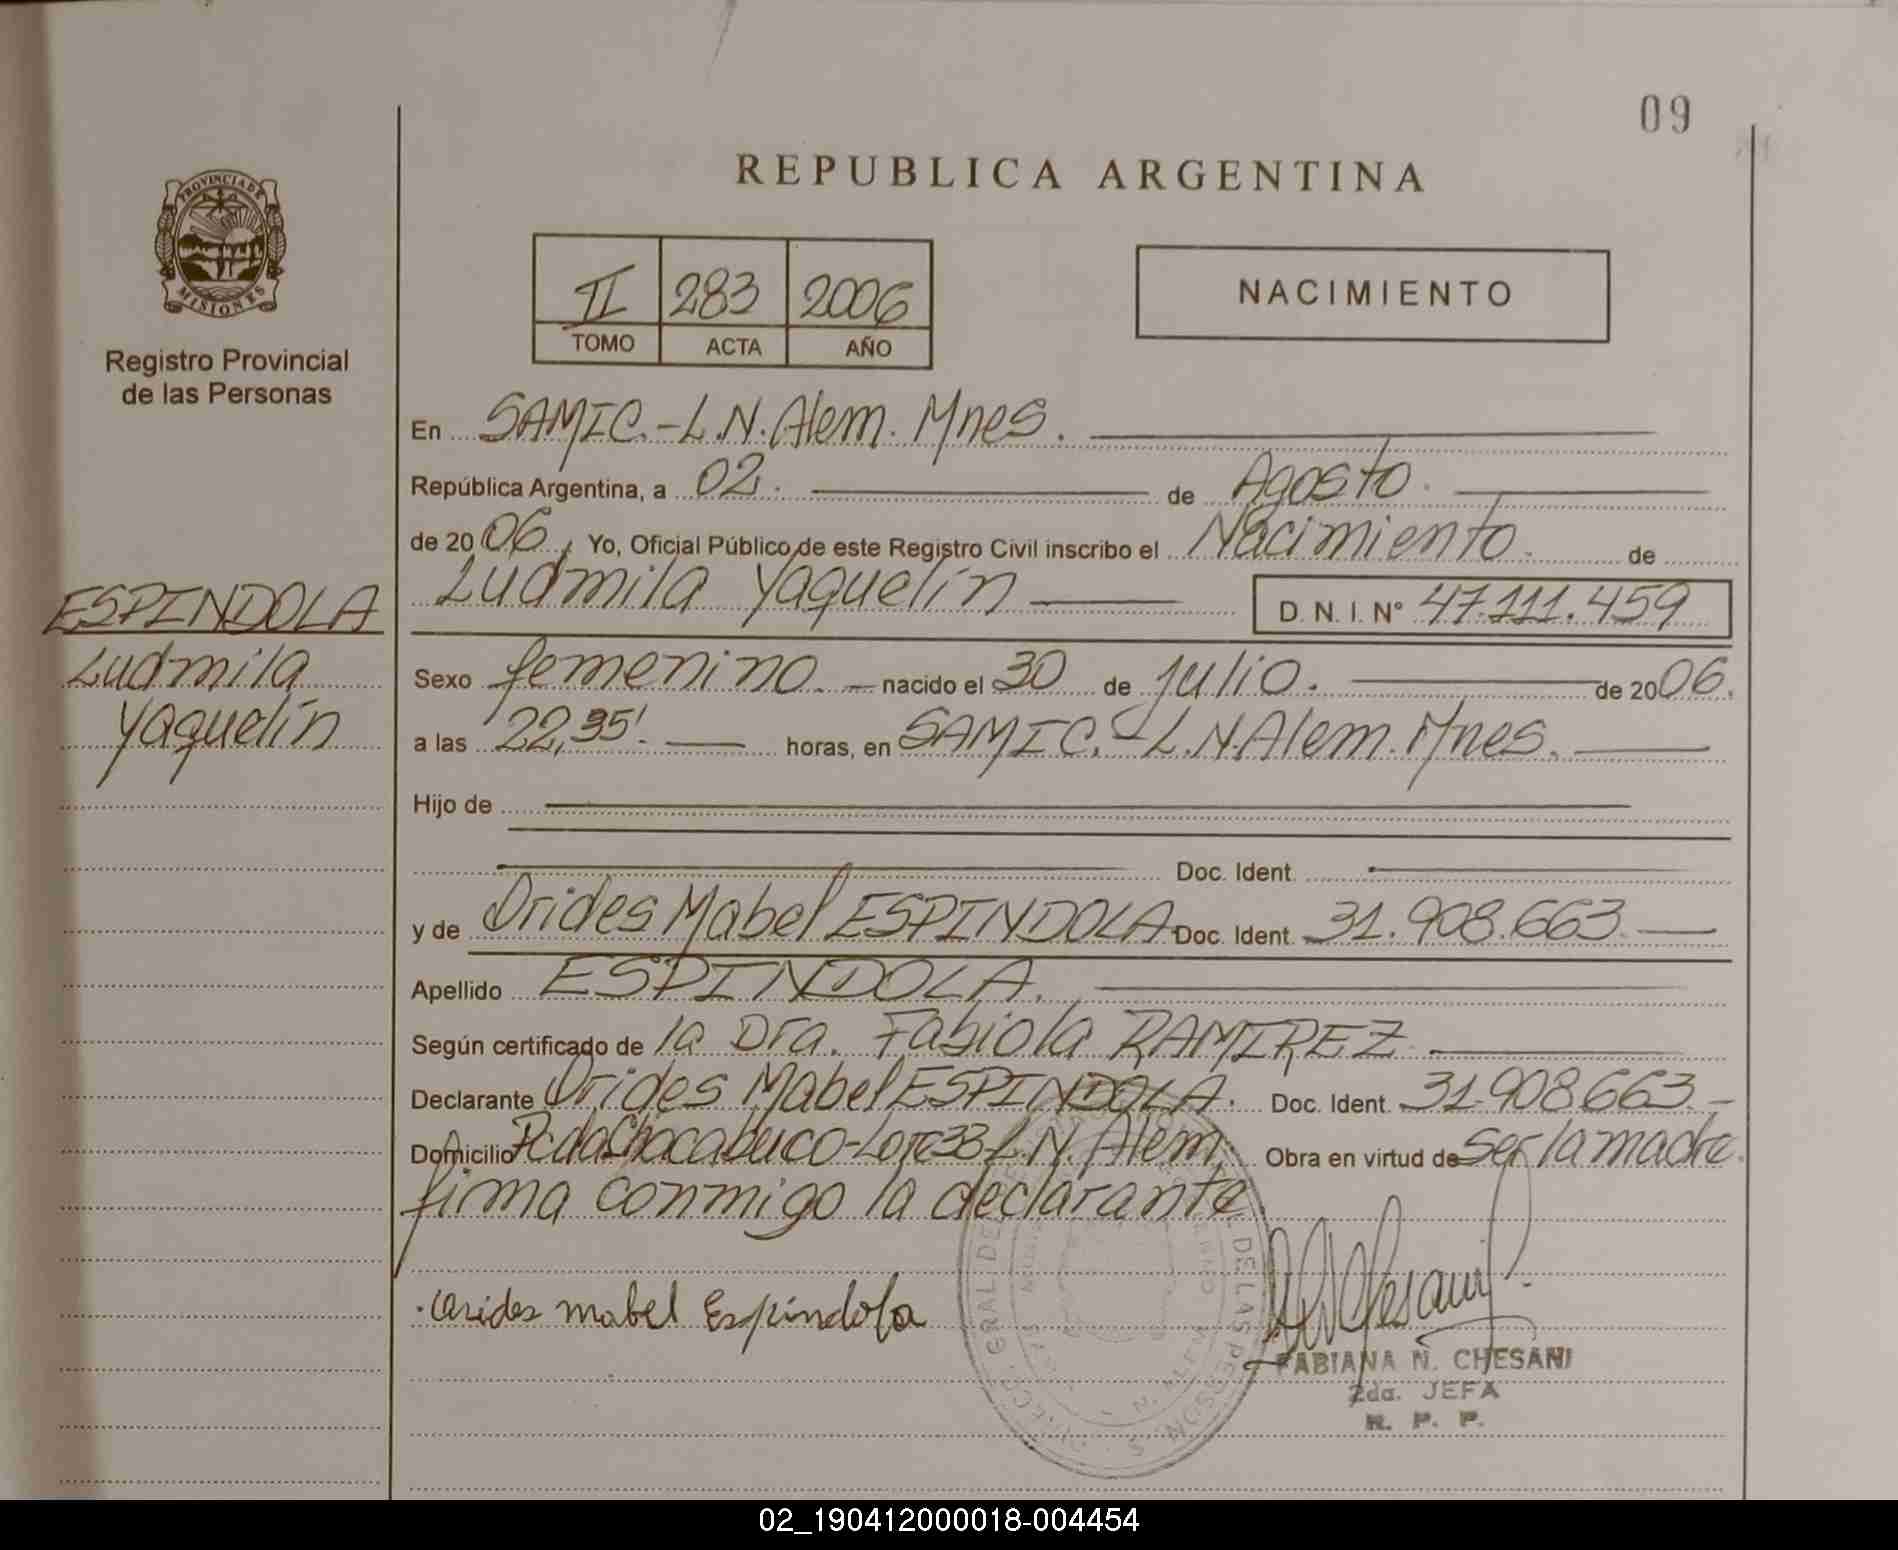 09
REPUBLICA ARGENTINA
PROVINCIA DE
MISIONES
Registro Provincial
de las Personas
II 283 2006
TOMO ACTA AÑO
NACIMIENTO
En SAMIC.-L.N.Alem. Mnes.
República Argentina, a 02. de Agosto.
de 2006, Yo, Oficial Público de este Registro Civil inscribo el Nacimiento. de
Ludmila Yaquelín D. N. I. Nº 47.111.459
ESPINDOLA
Ludmila
Yaquelín
Sexo femenino. nacido el 30 de julio. de 2006.
a las 22,35'. horas, en SAMIC.-L.N.Alem. Mnes.
Hijo de
Doc. Ident.
y de Orides Mabel ESPINDOLA Doc. Ident. 31.908.663
Apellido ESPINDOLA.
Según certificado de la Dra. Fabiola RAMIREZ
Declarante Orides Mabel ESPINDOLA. Doc. Ident. 31.908.663
Domicilio Pcda Chacabuco-Lote 33-L.N. Alem, Obra en virtud de ser la madre.
firma conmigo la declarante
Orides mabel Espíndola
FABIANA N. CHESANI
2da. JEFA
R. P. P.
02_190412000018-004454